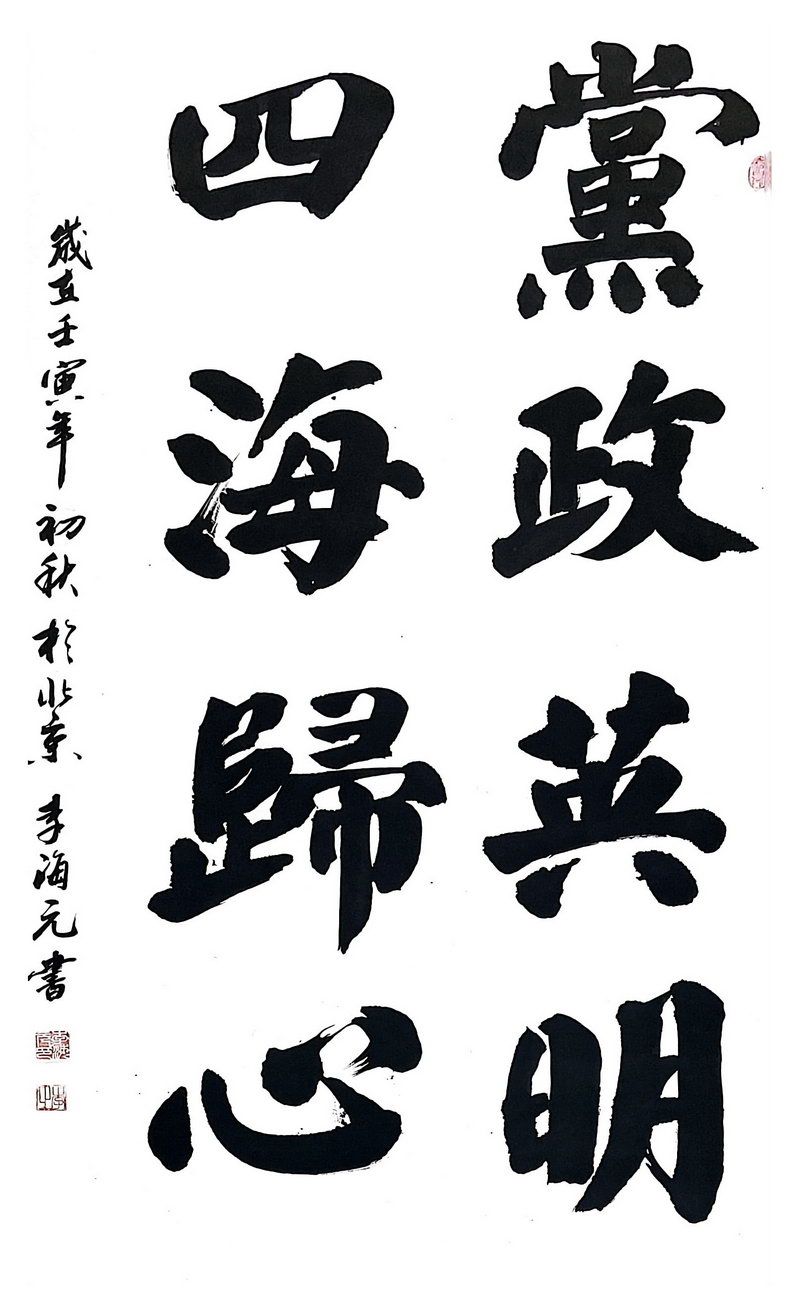 黨政英明
四海歸心
歲在壬寅年初秋於北京李海元書